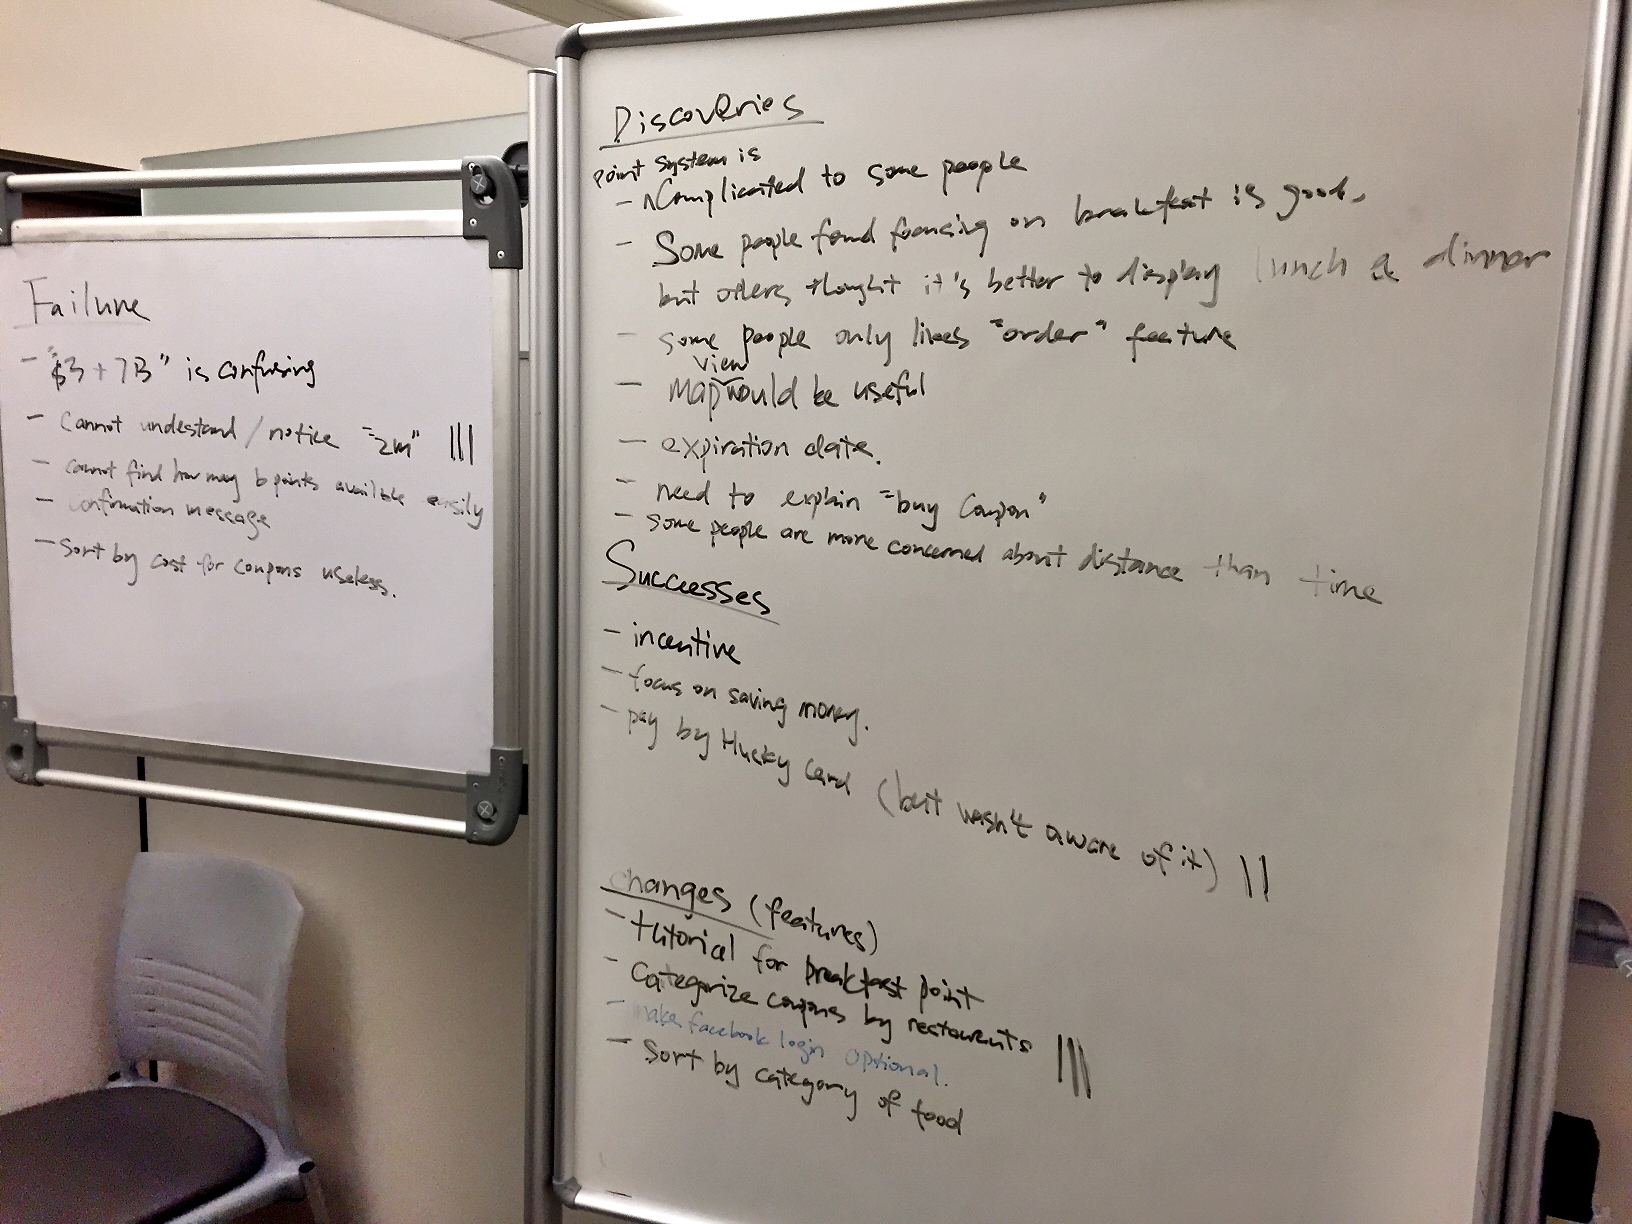 Failure
- "$3 + 7B" is confusing
- Cannot undestand / notice "2m" |||
- cannot find how may b points available easily
- confirmation message
- Sort by cost for coupons useless.
Discoveries
point system is
- ^Complicated to some people
- Some people found focusing on breakfast is good,
but others thought it's better to display lunch & dinner
- some people only likes "order" feature
view
- map would be useful
- expiration date.
- need to explain "buy Coupon"
- some people are more concerned about distance than time
Successes
- incentive
- focus on saving money.
- pay by Husky Card (but wasn't aware of it) ||
changes (features)
- tutorial for breakfast point
- Categorize coupons by restaurants ||||
- make facebook login optional.
- Sort by category of food